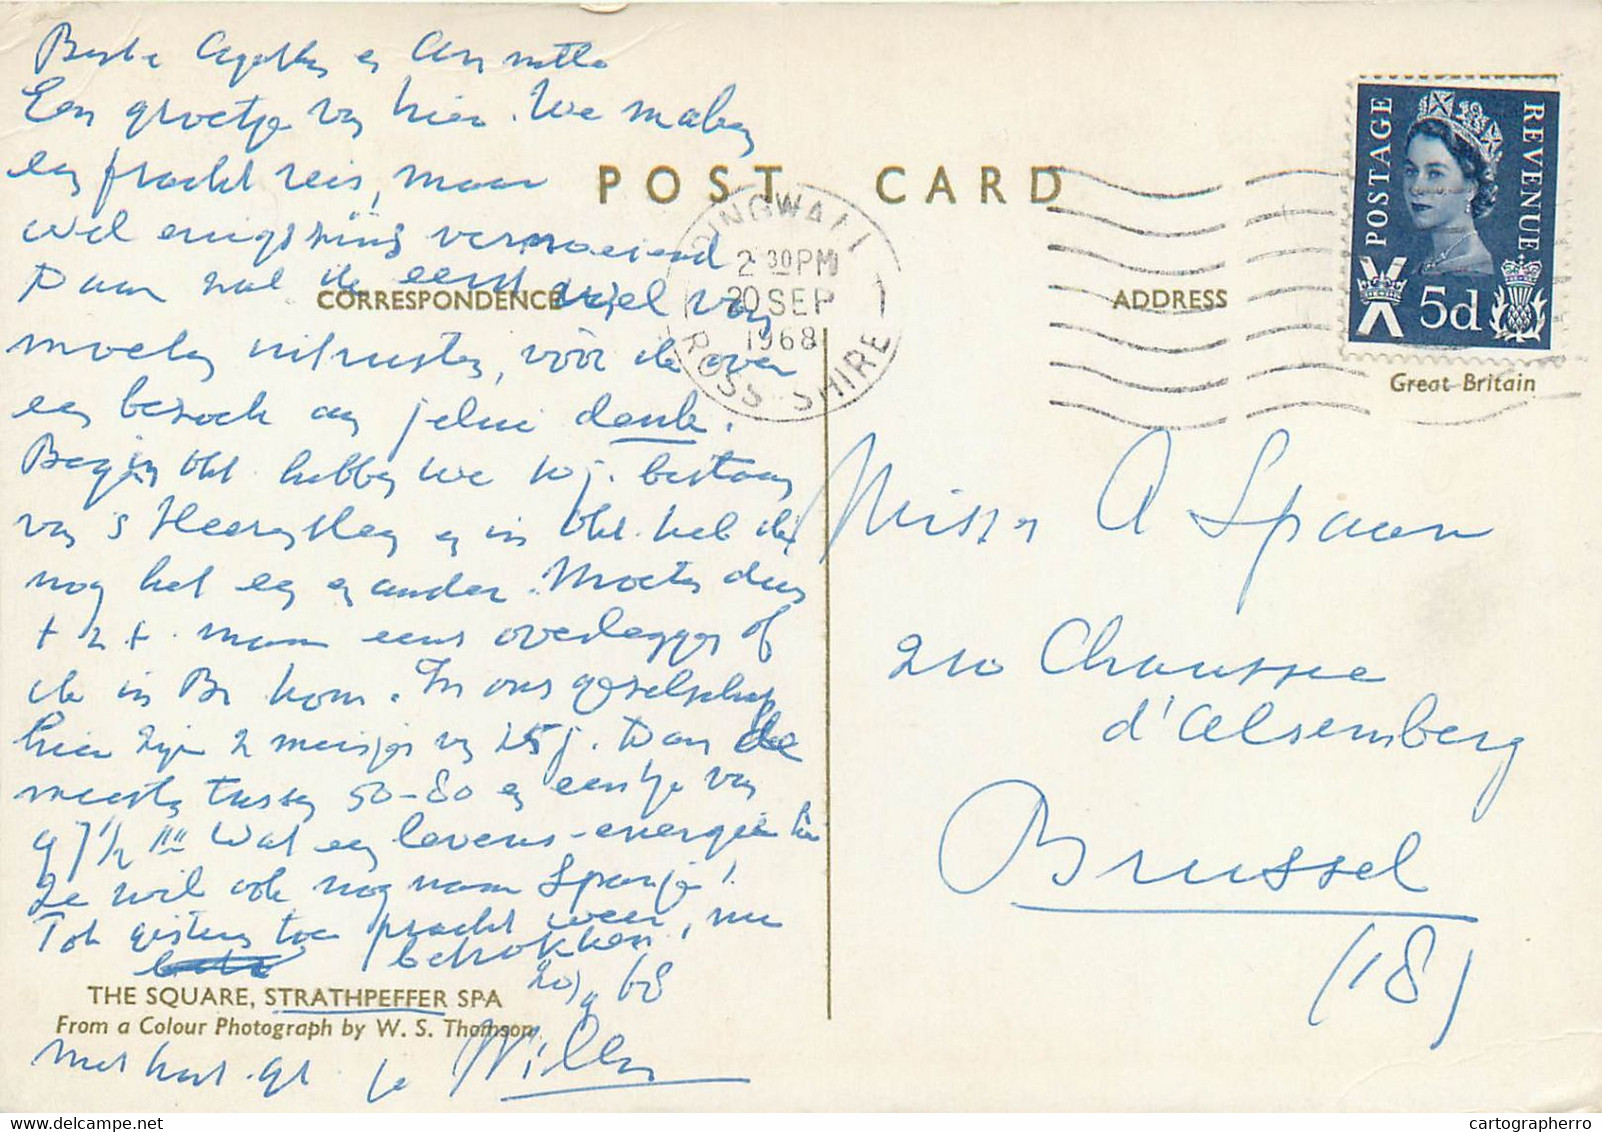 Beste Agatha en Annette
Een groetje van hier. We maken
een pracht reis, maar
wel enigszins vermoeiend
Daar zal ik eerst wel van
moeten uitrusten, vóór ik over
een bezoek aan jelui denk.
Begin Okt. hebben we 10 j. bestaan
van 's en in Okt. heb ik
nog het een en ander. Moeten dus
t z t. maar eens overleggen of
ik in Br kom. In ons gezelschap
hier zijn 2 meisjes van 25 j. Dan de
meesten tussen 50-80 en eentje van
97½ !!! Wat een levens-energie hè
Ze wil ook nog naar Spanje!
Tot gisteren toe pracht weer, nu
betrokken.
20/9 68
met hart. gr. je Willy
POST CARD
CORRESPONDENCE
ADDRESS
DINGWALL
2 30PM
20 SEP
1968
ROSS-SHIRE
POSTAGE
REVENUE
5d
Great Britain
A Spaan
210 Chaussee
d'Alsemberg
Brussel
(18)
THE SQUARE, STRATHPEFFER SPA
From a Colour Photograph by W. S. Thomson
cartographerro